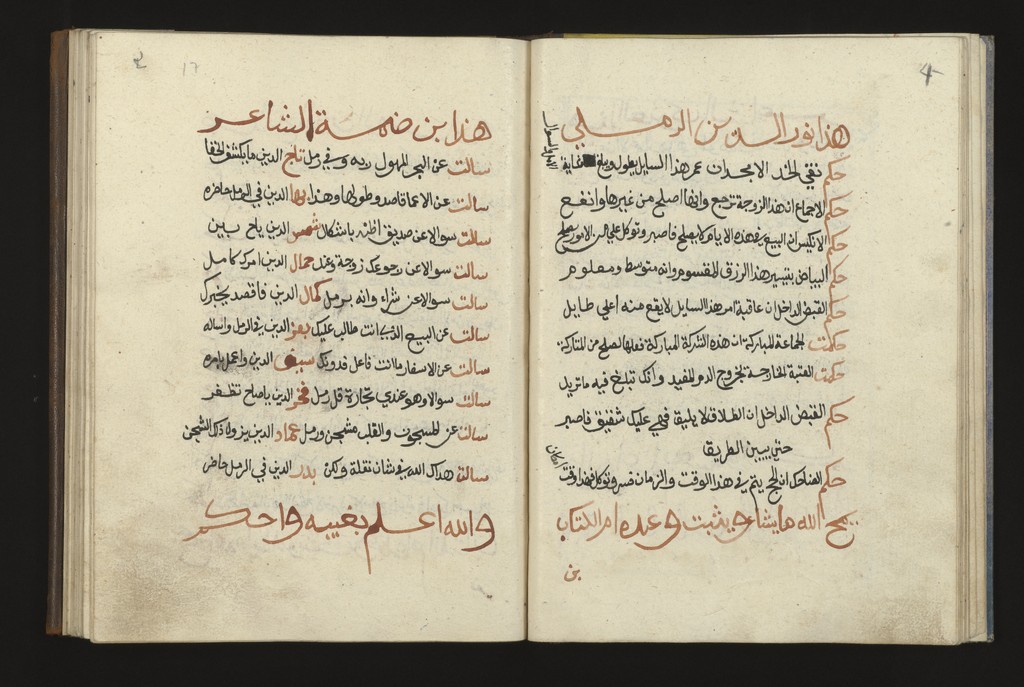 هذا نور الدين الرملي
حكم نقي الخد الامجد ان عمر هذا السايل يطول ويبلغ غاية
حكم الاجماع ان هذه الزوجة ترجع وانها اصلح من غيرها وانفع
حكم الانكيس ان البيع في هذه الايام لا يصلح فاصبر وتوكل علي
حكم البياض بتيسير هذا الرزق المقسوم وانه متوسط ومعلوم
حكم القبض الداخل ان عاقبة امر هذا السايل لا يقع منه اعلي طايل
حكمت الجماعة المباركة ان هذه الشركة المباركة فعلها اصلح من المتاركة
حكمت العتبة الخارجة بخروج الدم المفيد وانك تبلغ فيه ما تريد
حكم القبض الداخل ان الطلاق لا يليق فهي عليك شفيق فاصبر
حتي يبين الطريقا
حكم الضاحك ان الحج يتم في هذا الوقت والزمان فسر وتوكل فهذا وقت
امكان
يمح الله ما يشاء ويثبت وعده ام الكتاب
بن
4
١٦
هذا بن ضمة الشاعر
سالت عن البحر المهول وفي رمل تاج الدين ما يكشف الخفا
سالت عن الاعما قاصد وطولها وهذا بها الدين في الرمل حاضره
سالت سوالا عن صديق اظنه باشكال شمس الدين يا بين
سالت سوالا عن رجوعك زوجة وعند جمال الدين امرك كامل
سالت سوالا عن شراء وانه برمل كمال الدين فاقصد يخبرك
سالت عن البيع الذي انت طالب عليك بعز الدين في الرمل واساله
سالت عن الاسفار ما انت فاعل فدونك سيف الدين واعمل بامره
سالت سوالا وهو عندي تجارة قل رمل فخر الدين يا صاح تظفر
سالت عن المسجون والقلب مشجن ورمل عماد الدين يزول ذاك الشجن
سالت هداك الله في شان نقلة ولكن بدر الدين في الرمل حاضر
والله اعلم بغيبه واحكم